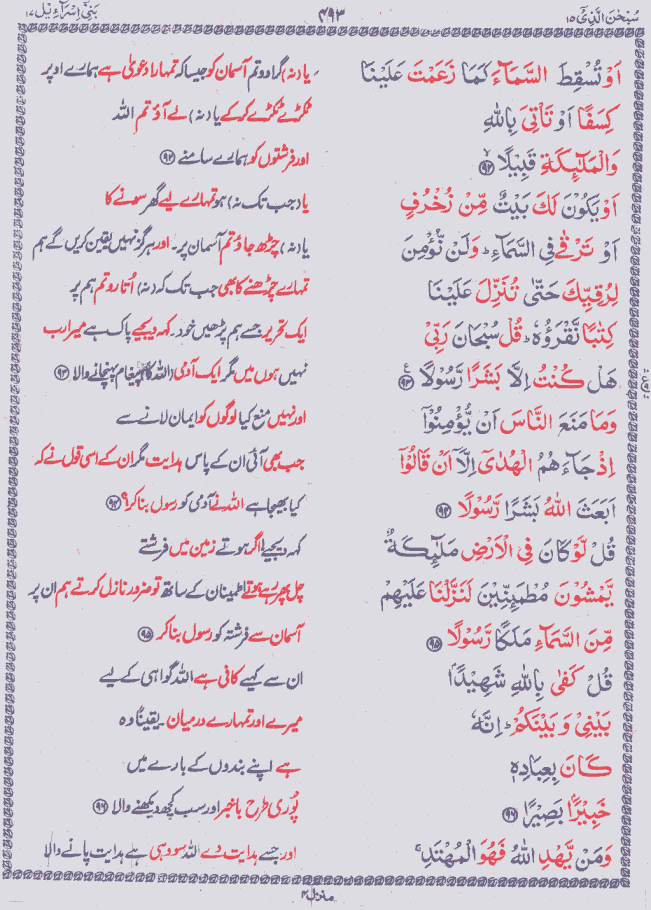 سُبْحٰنَ الَّذِیْۤ ۱۵
۴۹۳
بَنِیْۤ اِسْرَآءِیْل ۱۷
اَوْ تُسْقِطَ السَّمَآءَ كَمَا زَعَمْتَ عَلَيْنَا
یا (نہ) گرا دو تم آسمان کو جیسا کہ تمہارا دعویٰ ہے ہمارے اوپر
كِسَفًا اَوْ تَاْتِىَ بِاللّٰهِ
ٹکڑے ٹکڑے کر کے یا (نہ) لے آؤ تم اللہ
وَالْمَلٰٓئِكَةِ قَبِيْلًا ۙ ﴿۹۲﴾
اور فرشتوں کو ہمارے سامنے ﴿۹۲﴾
اَوْ يَكُوْنَ لَكَ بَيْتٌ مِّنْ زُخْرُفٍ
یا (جب تک نہ) ہو تمہارے لیے گھر سونے کا
اَوْ تَرْقٰى فِى السَّمَآءِ ؕ وَلَنْ نُّؤْمِنَ
یا (نہ) چڑھ جاؤ تم آسمان پر۔ اور ہرگز نہیں یقین کریں گے ہم
لِرُقِيِّكَ حَتّٰى تُنَزِّلَ عَلَيْنَا
تمہارے چڑھنے کا بھی جب تک کہ (نہ) اُتارو تم ہم پر
كِتٰبًا نَّقْرَؤُهٗ ؕ قُلْ سُبْحَانَ رَبِّىْ
ایک تحریر جسے ہم پڑھیں خود۔ کہہ دیجیے پاک ہے میرا رب
هَلْ كُنْتُ اِلَّا بَشَرًا رَّسُوْلًا ۠ ﴿۹۳﴾ ع
نہیں ہوں میں مگر ایک آدمی (اللہ کا) پیغام پہنچانے والا ﴿۹۳﴾
وَمَا مَنَعَ النَّاسَ اَنْ يُّؤْمِنُوْۤا
اور نہیں منع کیا لوگوں کو ایمان لانے سے
اِذْ جَآءَهُمُ الْهُدٰٓى اِلَّاۤ اَنْ قَالُوْۤا
جب بھی آئی ان کے پاس ہدایت مگر ان کے اسی قول نے کہ
اَبَعَثَ اللّٰهُ بَشَرًا رَّسُوْلًا ﴿۹۴﴾
کیا بھیجا ہے اللہ نے آدمی کو رسول بنا کر؟ ﴿۹۴﴾
قُلْ لَّوْ كَانَ فِى الْاَرْضِ مَلٰٓئِكَةٌ
کہہ دیجیے اگر ہوتے زمین میں فرشتے
يَّمْشُوْنَ مُطْمَئِنِّيْنَ لَنَزَّلْنَا عَلَيْهِمْ
چل پھر رہے ہوتے اطمینان کے ساتھ تو ضرور نازل کرتے ہم ان پر
مِّنَ السَّمَآءِ مَلَكًا رَّسُوْلًا ﴿۹۵﴾
آسمان سے فرشتہ کو رسول بنا کر ﴿۹۵﴾
قُلْ كَفٰى بِاللّٰهِ شَهِيْدًۢا
ان سے کہیے کافی ہے اللہ گواہی کے لیے
بَيْنِىْ وَبَيْنَكُمْ ؕ اِنَّهٗ
میرے اور تمہارے درمیان۔ یقیناً وہ
كَانَ بِعِبَادِهٖ
ہے اپنے بندوں کے بارے میں
خَبِيْرًۢا بَصِيْرًا ﴿۹۶﴾
پُوری طرح باخبر اور سب کچھ دیکھنے والا ﴿۹۶﴾
وَمَنْ يَّهْدِ اللّٰهُ فَهُوَ الْمُهْتَدِ ۚ
اور جسے ہدایت دے اللہ سو وہی ہے ہدایت پانے والا
منزل ۴